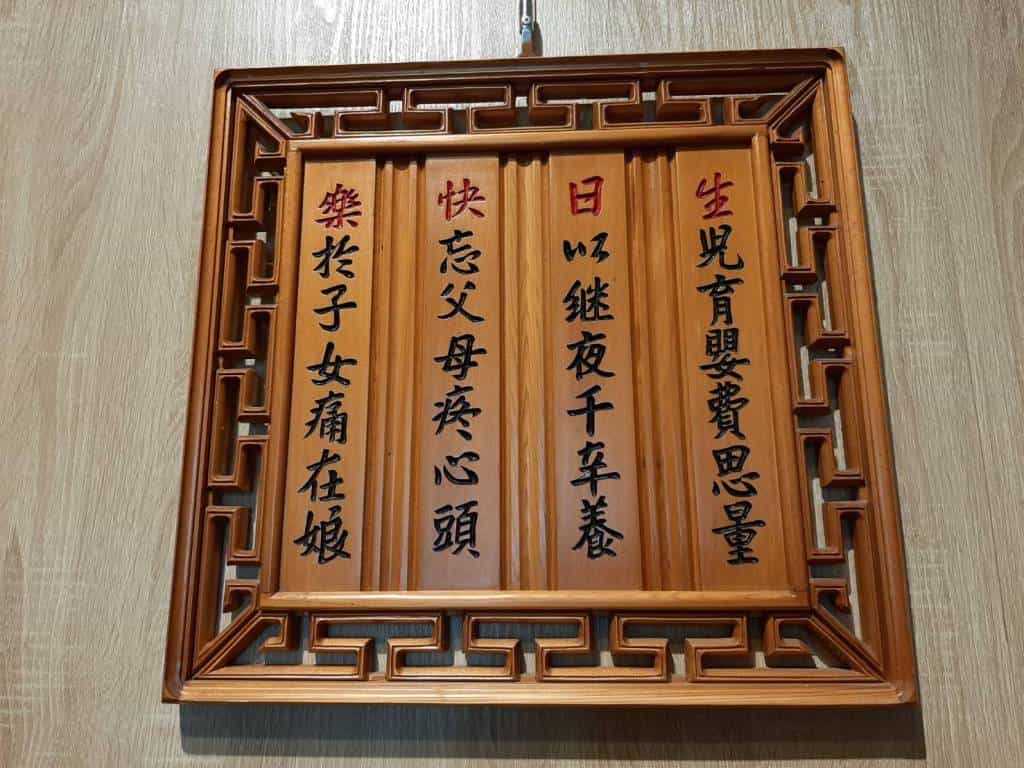 生児育嬰費思量
日以继夜千辛養
快忘父母疼心頭
樂於子女痛在娘